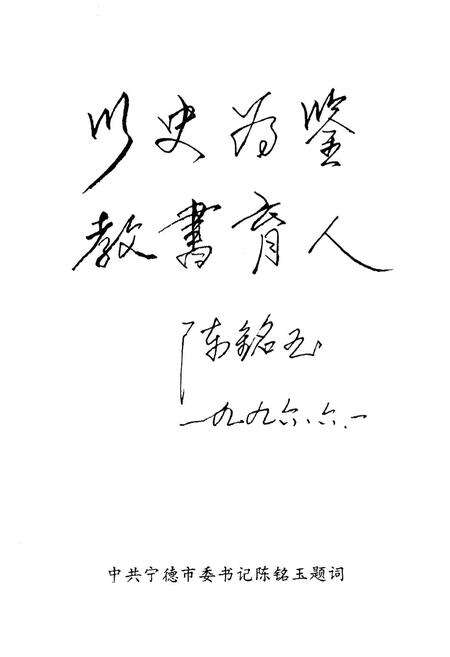 以史为鉴
教書育人
陈铭玉
一九九六.六.一
中共宁德市委书记陈铭玉题词